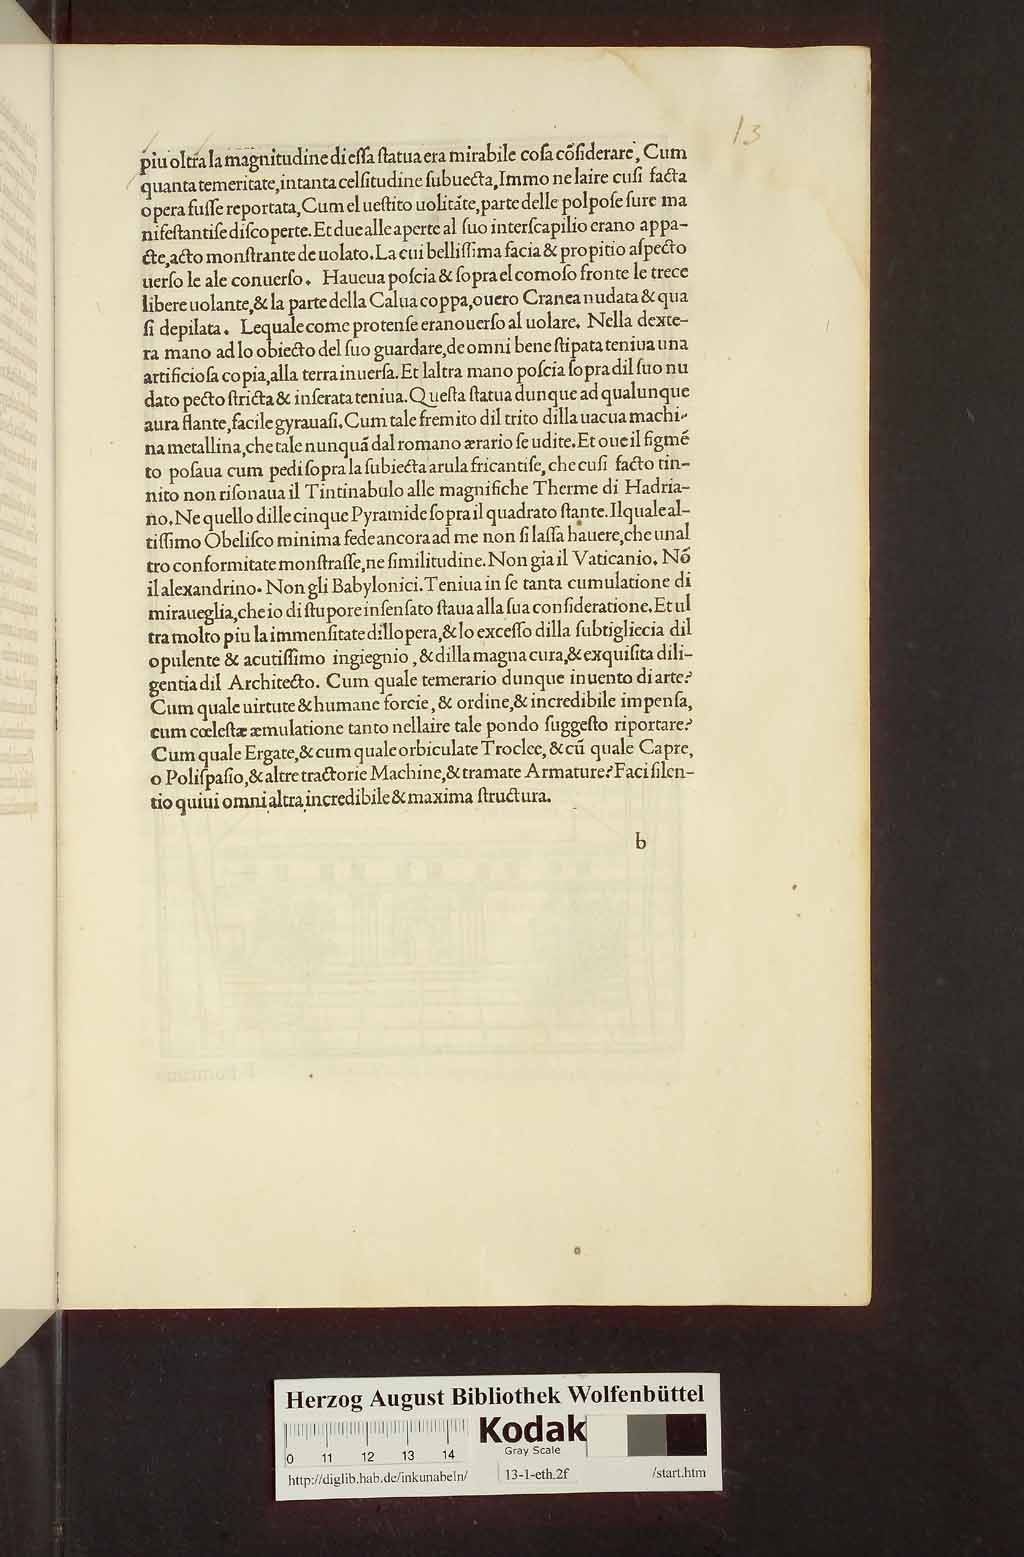 13
piu oltra la magnitudine di eſſa ſtatua era mirabile coſa cõſiderare, Cum
quanta temeritate, in tanta celſitudine ſubuecta, Immo ne laire cuſi facta
opera fuſſe reportata, Cum el ueſtito uolitãte, parte delle polpoſe ſure ma
nifeſtantiſe diſcoperte. Et due alle aperte al ſuo interſcapilio erano appa-
cte, acto monſtrante de uolato. La cui belliſſima facia & propitio aſpecto
uerſo le ale conuerſo. Haueua poſcia & ſopra el comoſo fronte le trece
libere uolante, & la parte della Calua coppa, ouero Cranea nudata & qua
ſi depilata. Lequale come protenſe erano uerſo al uolare. Nella dexte-
ra mano ad lo obiecto del ſuo guardare, de omni bene ſtipata teniua una
artificioſa copia, alla terra inuerſa. Et laltra mano poſcia ſopra dil ſuo nu
dato pecto ſtricta & inſerata teniua. Queſta ſtatua dunque ad qualunque
aura flante, facile gyrauaſi. Cum tale fremito dil trito dilla uacua machi-
na metallina, che tale nunquã dal romano ærario ſe udite. Et oue il figmẽ
to poſaua cum pedi ſopra la ſubiecta arula fricantiſe, che cuſi facto tin-
nito non riſonaua il Tintinabulo alle magnifiche Therme di Hadria-
no. Ne quello dille cinque Pyramide ſopra il quadrato ſtante. Ilquale al-
tiſſimo Obeliſco minima fede ancora ad me non ſi laſſa hauere, che unal
tro conformitate monſtraſſe, ne ſimilitudine. Non gia il Vaticanio. Nõ
il alexandrino. Non gli Babylonici. Teniua in ſe tanta cumulatione di
miraueglia, che io di ſtupore inſenſato ſtaua alla ſua conſideratione. Et ul
tra molto piu la immenſitate dillopera, & lo exceſſo dilla ſubtigliecia dil
opulente & acutiſſimo ingiegnio, & dilla magna cura, & exquiſita dili-
gentia dil Architecto. Cum quale temerario dunque inuento di arte?
Cum quale uirtute & humane forcie, & ordine, & incredibile impenſa,
cum cœleſtæ æmulatione tanto nellaire tale pondo ſuggeſto riportare?
Cum quale Ergate, & cum quale orbiculate Troclee, & cũ quale Capre,
o Poliſpaſio, & altre tractorie Machine, & tramate Armature? Faci ſilen-
tio quiui omni altra incredibile & maxima ſtructura.
b
Herzog August Bibliothek Wolfenbüttel
Kodak
Gray Scale
0 11 12 13 14
http://diglib.hab.de/inkunabeln/ 13-1-eth.2f /start.htm